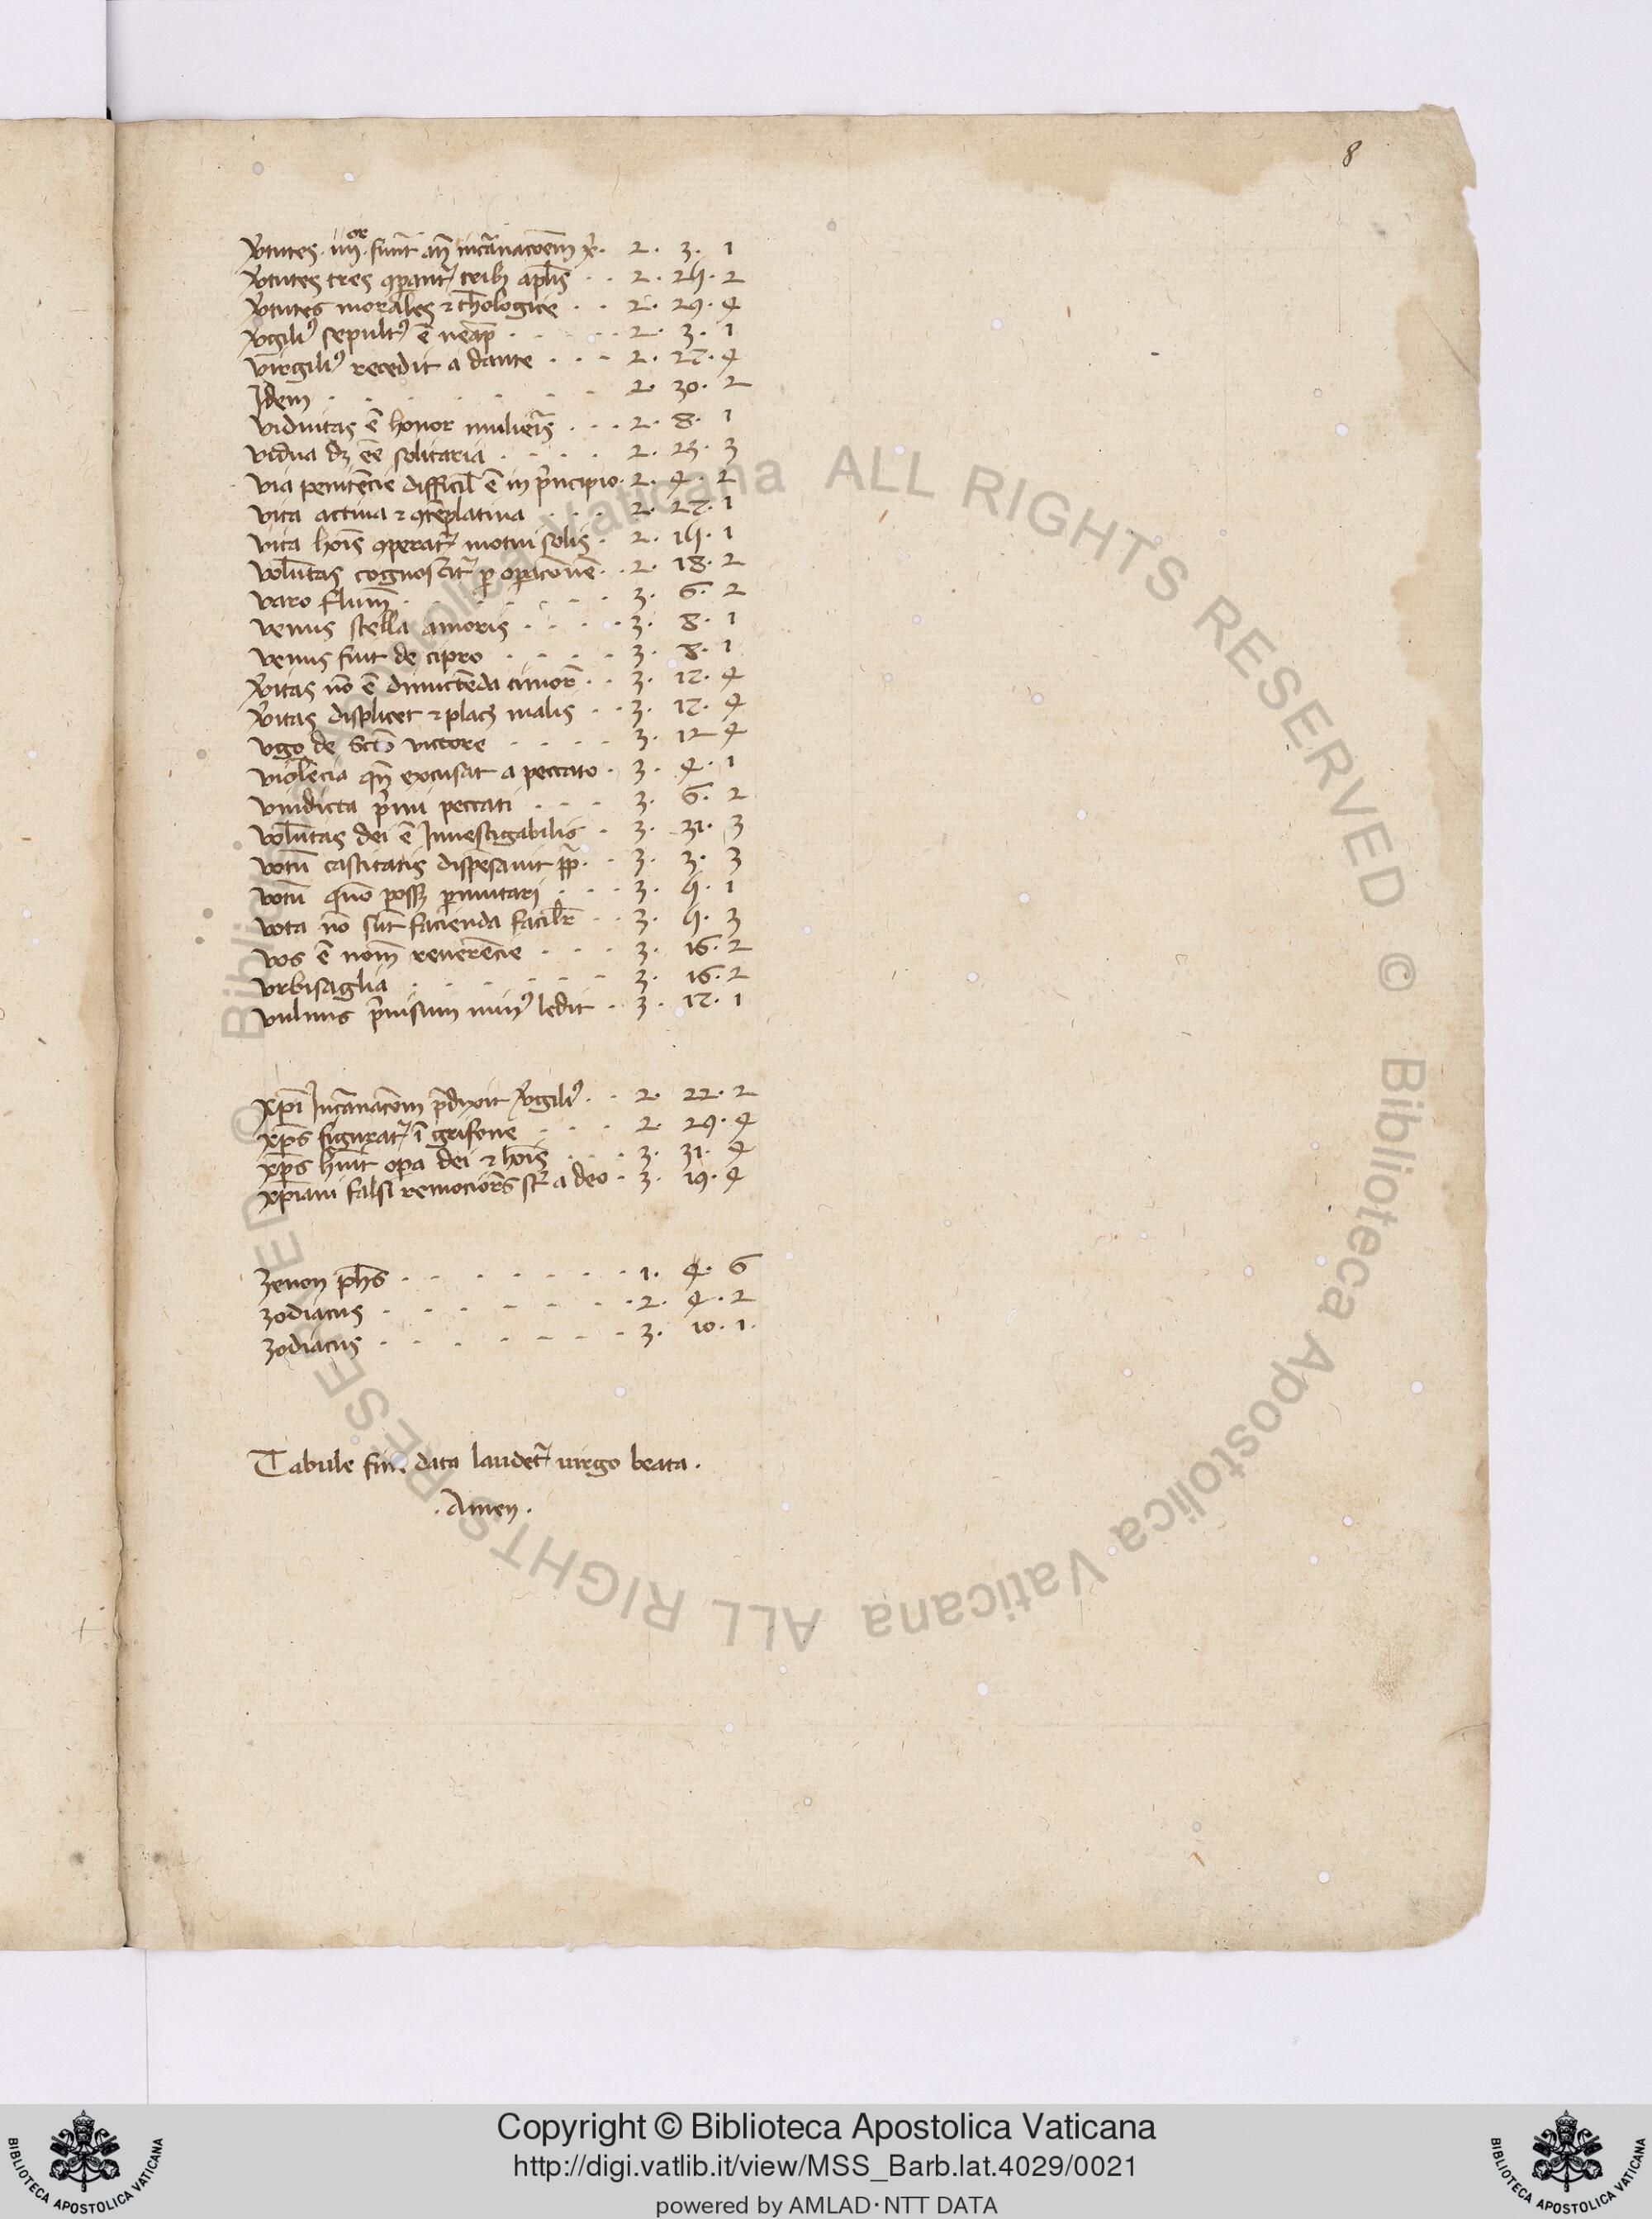 8
v̓tutes · iiij^or · fuert̄ an̄ incarnac̄oem x̓ · 2 · 3 · 1
v̓tutes tres ꝯparant᷑ trib᷒ aplis̄ · · 2 · 25 · 2
v̓tutes morales ⁊ theologice · · 2 · 29 · 4
v̓giliꝰ sepultꝰ ē neap̄ · · · · 2 · 3 · 1
virgiliꝰ recedit a dante · · · 2 · 27 · 4
Idem · · · · · · · 2 · 30 · 2
viduitas ē honor mulieris̄ · · · 2 · 8 · 1
vidua dꝫ eē solitaria · · · · 2 · 23 · 3
via penitēcie difficil̄ ē in pͥncipio · 2 · 4 · 2
vita actiua ⁊ ꝯtēplatiua · · · 2 · 27 · 1
vita hoīs ꝯperat᷑ motui solis · 2 · 15 · 1
volūtas cognoscit᷑ ꝑ oꝑaconē · · 2 · 18 · 2
varo flum̄ · · · · · · · 3 · 6 · 2
venus stella amoris · · · · 3 · 8 · 1
venus fuit de cipro · · · · 3 · 8 · 1
v̓itas nō ē dimictēda timor̄ · · 3 · 17 · 4
v̓itas displicet ⁊ placꝫ malis · · 3 · 17 · 4
vgo de Sc̄o victore · · · · 3 · 12 4
violēcia qn̄ excusat a peccato · 3 · 4 · 1
vindicta pͥmi peccati · · · 3 · 6 · 2
volūtas dei ē Inuestigabilis · 3 · 31 · 3
votū castitatis dispēsauit pp̄ · · 3 · 3 · 3
votū quō possꝫ ꝑmutari · · · 3 · 5 · 1
vota nō sūt facienda facilr̄ · · 3 · 5 · 3
vos ē nom̄ reuerēcie · · · 3 · 16 · 2
vrbisaglia · · · · · · 3 · 16 · 2
vulnus p̄uisum minꝰ ledit · 3 · 17 · 1
xp̄i Incarnac̄oem p̄dixit v̓giliꝰ · · 2 · 22 · 2
xp̄s figurat᷑ ī grifone · · · 2 · 29 · 4
xp̄s hūit oꝑa dei ⁊ hoīs · · · 3 · 31 · 4
xp̄iani falsi remociores st᷑ a deo · 3 · 19 · 4
Zenon ph̄s · · · · · · · 1 · 4 · 6
Zodiacus · · · · · · · 2 · 4 · 2
Zodiacus · · · · · · · 3 · 10 · 1 ·
Tabule fine data laudet᷑ uirgo beata ·
· Amen ·
© Biblioteca Apostolica Vaticana ALL RIGHTS RESERVED © Biblioteca Apostolica Vaticana ALL RIGHTS RESERVED
BIBLIOTECA APOSTOLICA VATICANA
Copyright © Biblioteca Apostolica Vaticana
http://digi.vatlib.it/view/MSS_Barb.lat.4029/0021
powered by AMLAD·NTT DATA
BIBLIOTECA APOSTOLICA VATICANA